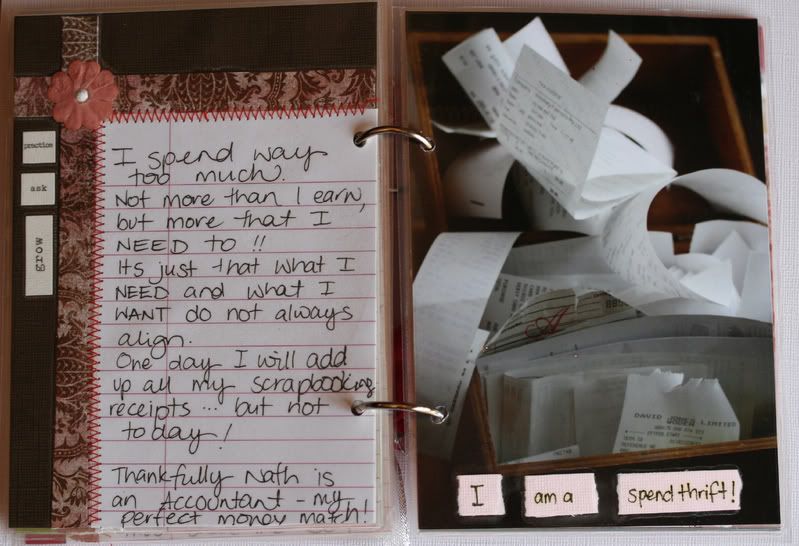 practice
ask
grow
I spend way
too much.
Not more than I earn,
but more that I
NEED to !!
Its just that what I
NEED and what I
WANT do not always
align.
One day I will add
up all my scrapbooking
receipts ... but not
today!
Thankfully Nath is
an Accountant - my
perfect money match!
DAVID JONES LIMITED
I am a spend thrift!